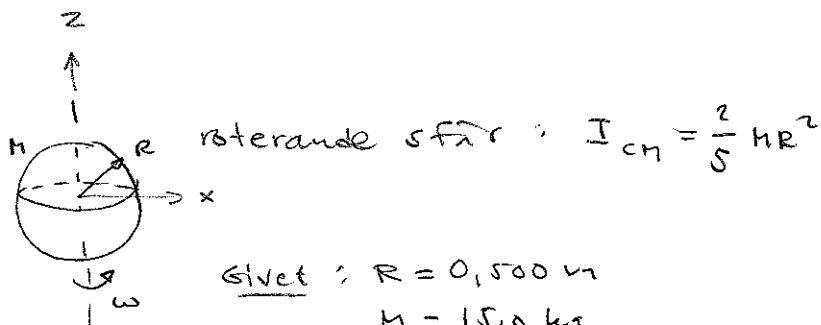 z
M R roterande sfär : I_CM = 2/5 MR²
x
Givet : R = 0,500 m
ω
M = 15,0 kg